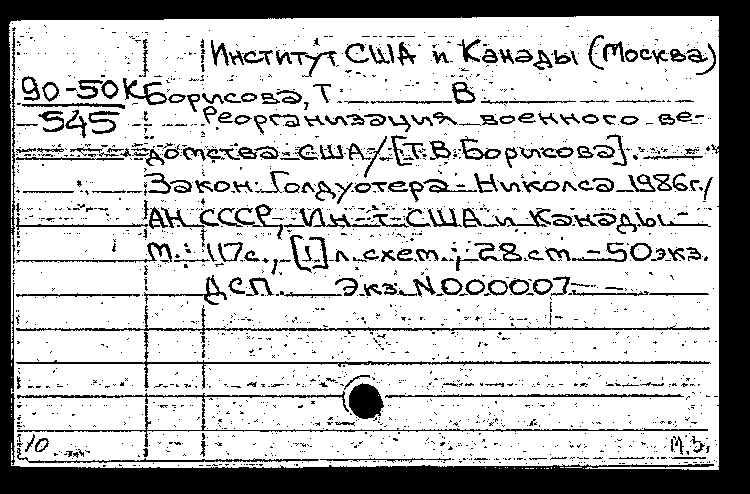 Институт США и Канады (Москва)
90-50К Борисова, Т. В.
545 Реорганизация военного ве-
домства США/[Т.В.Борисова].
Закон Голдуотера-Николса 1986г./
АН СССР, Ин-т США и Канады.-
М.: 117с., [1]л.схем.; 28см.-50экз.
ДСП. Экз.N000007.
10 М.З.